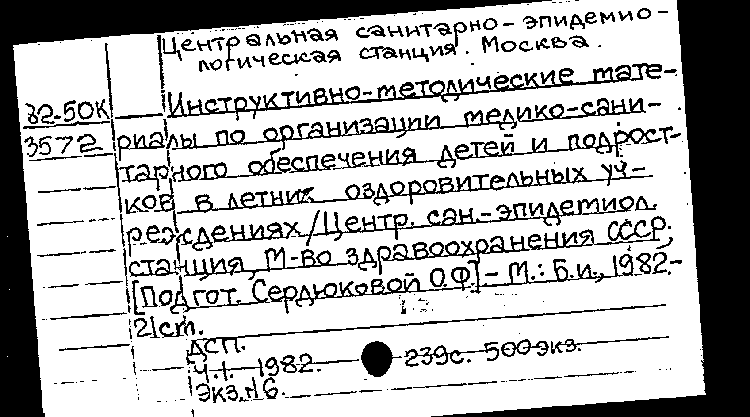 Центральная санитарно-эпидемио-
логическая станция. Москва.
82-50К Инструктивно-методические мате-
3572 риалы по организации медико-сани-
тарного обеспечения детей и подрост-
ков в летних оздоровительных уч-
реждениях/Центр. сан.-эпидемиол.
станция, М-во здравоохранения СССР;
[Подгот. Сердюковой О.Ф.] - М.: Б.и., 1982.-
21см.
ДСП.
Ч.1. 1982. 239с. 500экз.
Экз.№6.